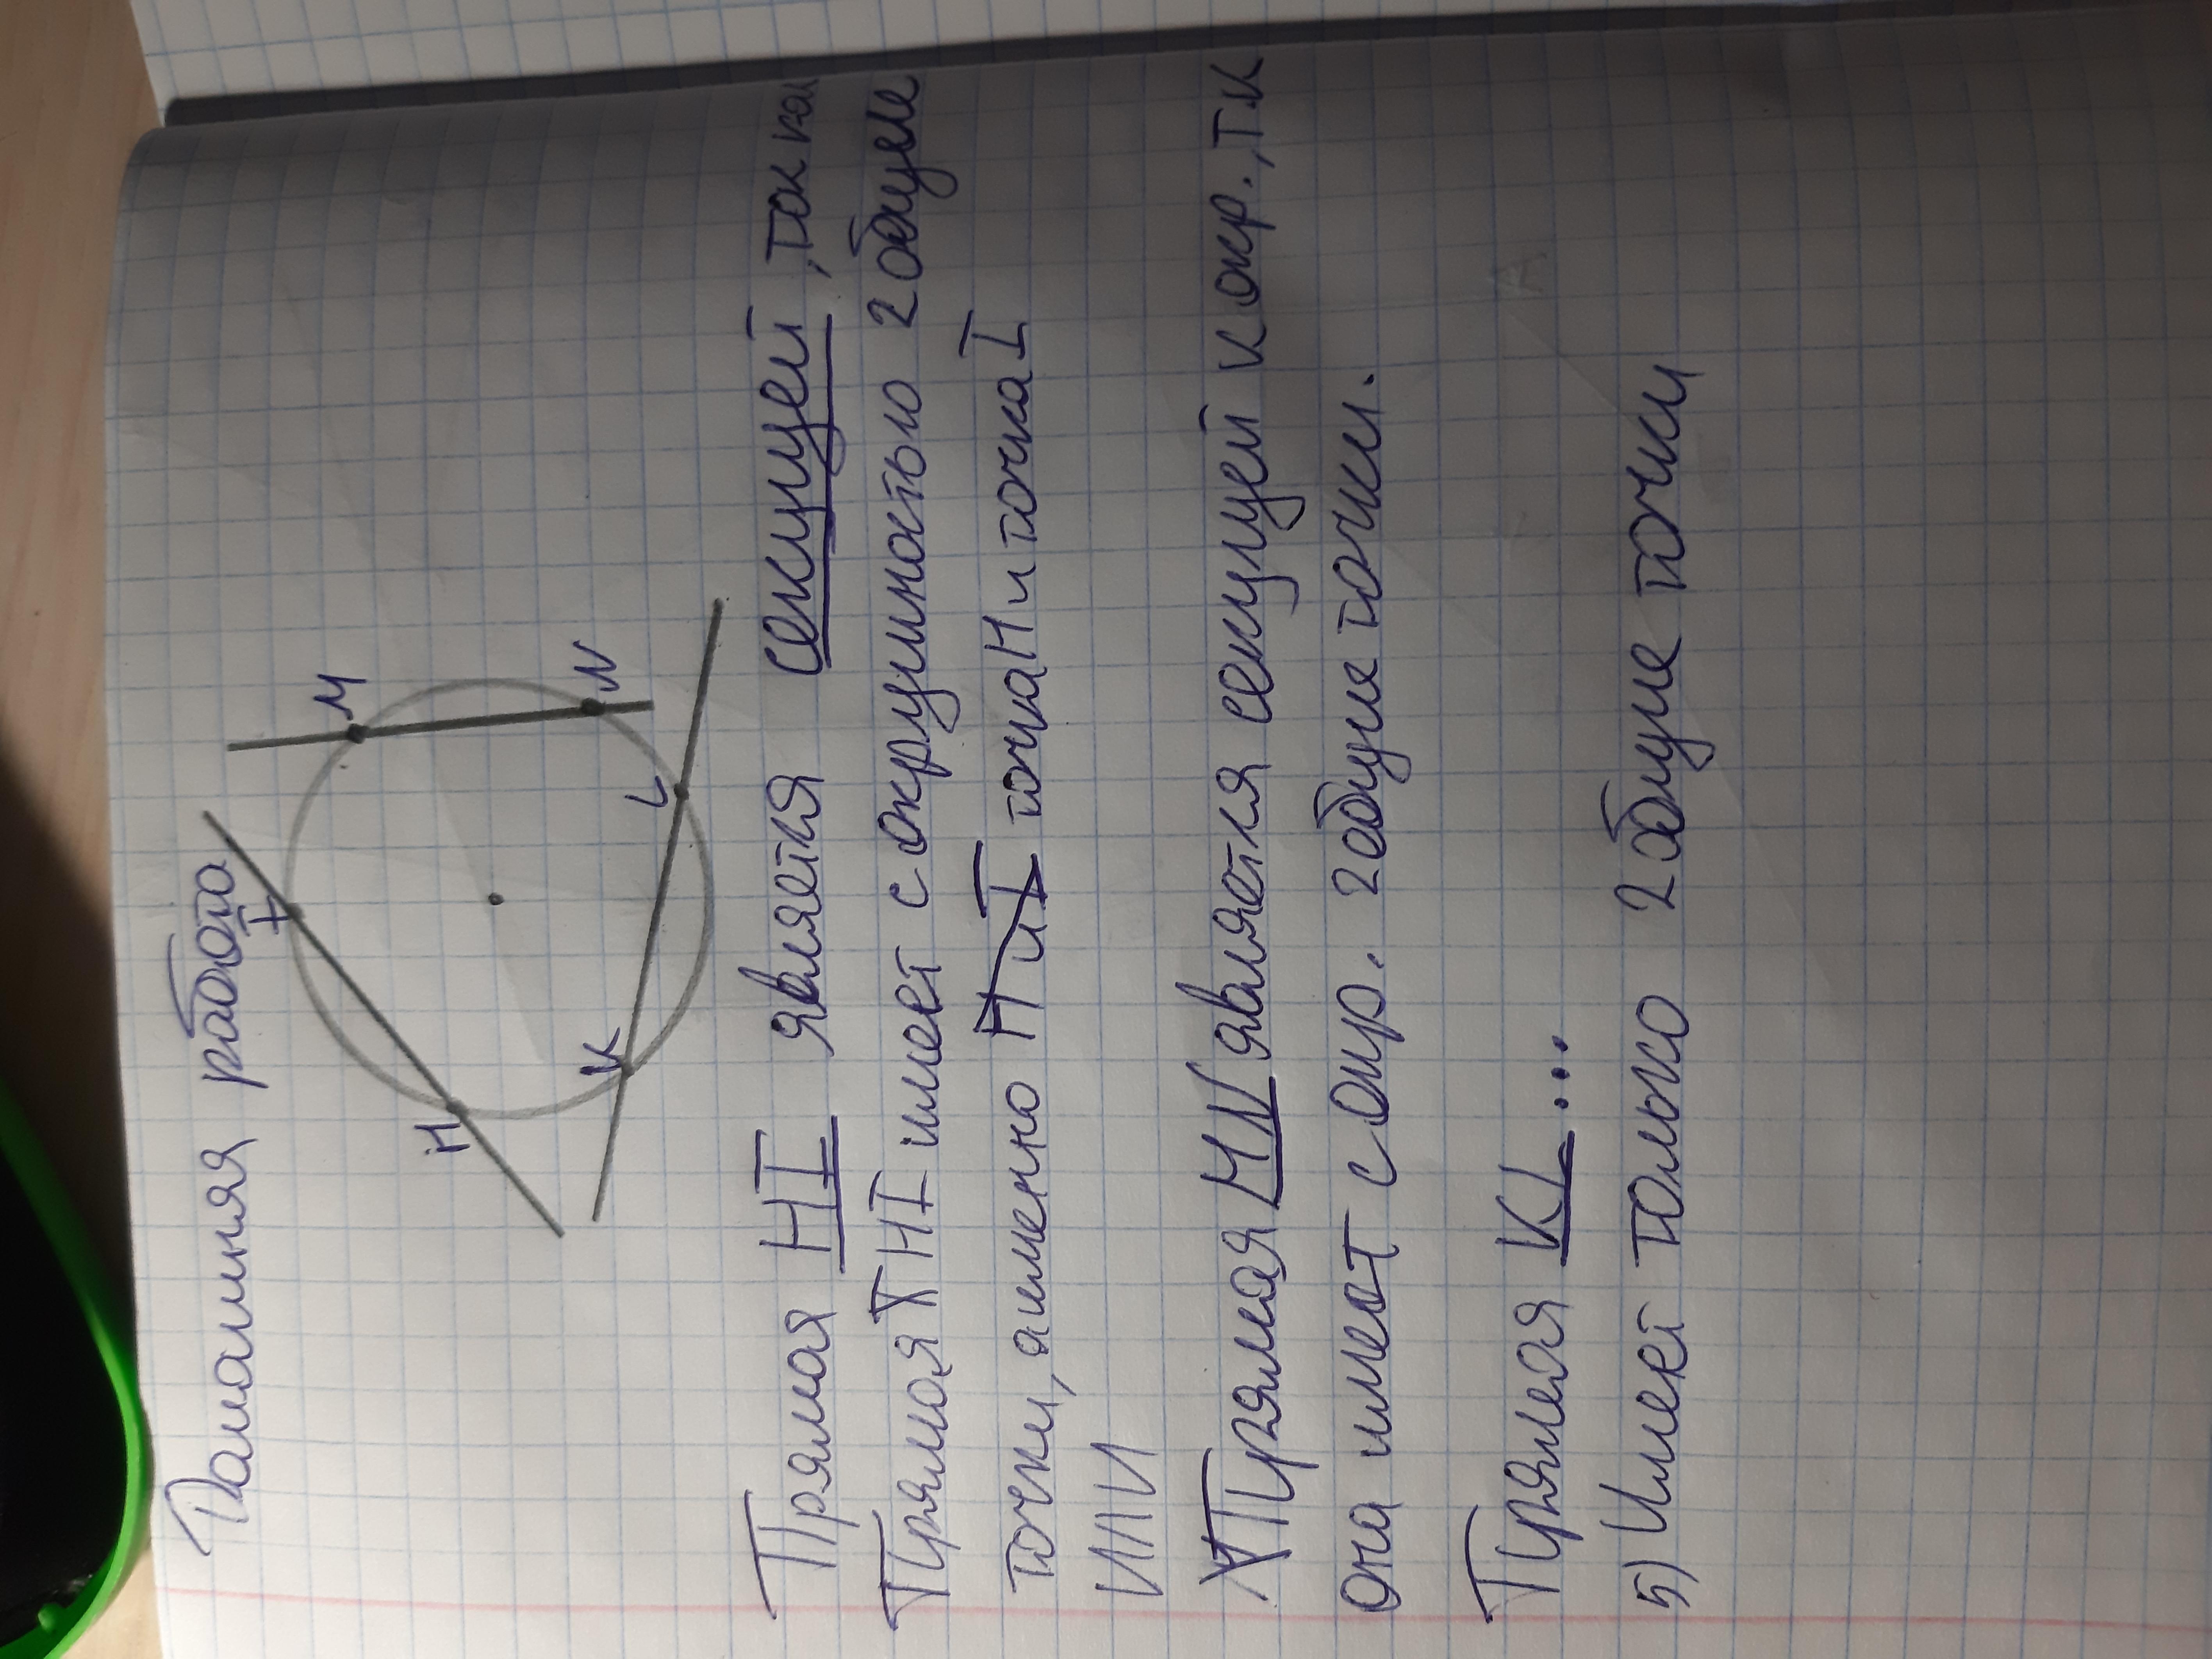 Домашняя работа
I
M
H
N
K
L
Прямая HI является секущей, так как
Прямая HI имеет с окружностью 2 общие
точки, а именно H и I точка H и точка I
ИЛИ
Прямая MN является секущей к окр., т.к
она имеет с окр. 2 общие точки.
Прямая KL...
5) Имеет только 2 общие точки